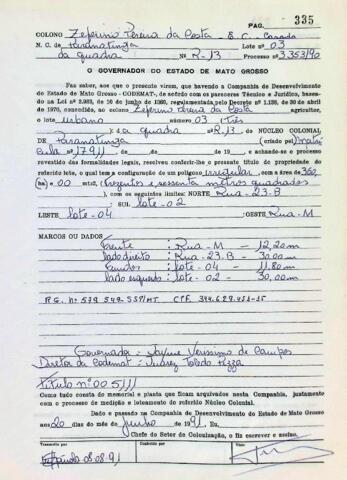 PAG. 335
COLONO Zeferino Pereira da Costa - E.C. - Casado
N. C. de Paranatinga Lote nº 03
da quadra Nº R-13 Processo nº 3.353/90
O GOVERNADOR DO ESTADO DE MATO GROSSO
Faz saber, aos que o presente virem, que havendo a Companhia de Desenvolvimento
do Estado de Mato Grosso - CODEMAT-, de acordo com os pareceres Técnico e Jurídico, basea-
dos na Lei nº 2.983, de 10 de junho de 1960, regulamentada pelo Decreto nº 1.138, de 30 de abril
de 1970, concedido, ao colono Zeferino Pereira da Costa agricultor,
o lote urbano número 03 três
da quadra R-13 do NÚCLEO COLONIAL
DE Paranatinga (criado pel
nº 1.791 de de de 19 , e achando-se o processo
revestido das formalidades legais, resolveu conferir-lhe o presente título de propriedade do
referido lote, o qual tem a configuração de um polígono irregular, com a área de 360
ha) e 00 mts2, (trezentos e sessenta metros quadrados
), com os seguintes limites: NORTE Rua-23.B
; SUL lote-02
LESTE lote-04 ; OESTE Rua-M
MARCOS OU DADOS
Frente : Rua-M - 12,20m
lado direito : Rua-23.B - 30,00m
fundos : lote-04 - 11,80m
lado esquerdo : lote-02 - 30,00m
R.G. nº 579 549 SSP/MT. CPF.
Governador: Jayme Verissimo de Campos
Diretor da Codemat: Juarez Toledo Pizza
título nº 005/11
Como tudo consta do memorial e planta que ficam arquivados nesta Companhia, juntamente
com o processo de medição e loteamento do referido Núcleo Colonial.
Dado e passado na Companhia de Desenvolvimento do Estado de Mato Grosso
aos 20 dias do mês de junho de 1991, Eu,
Chefe do Setor de Colonização, o fiz escrever e assino.
Transcrito por Conferido por Visto
Expedido 08.08.91